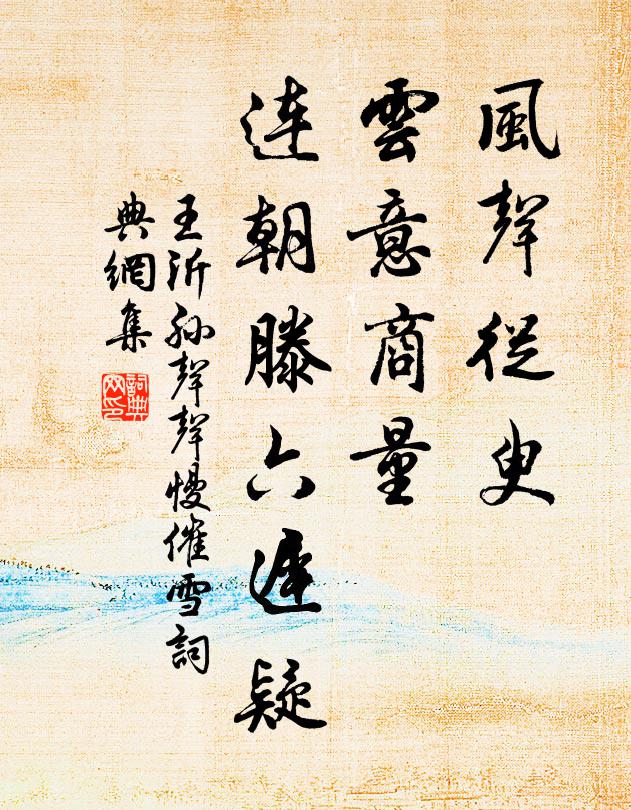 風聲從臾
雲意商量
連朝滕六遲疑
王沂孫聲聲慢催雪詞
典網集
詞典
網印